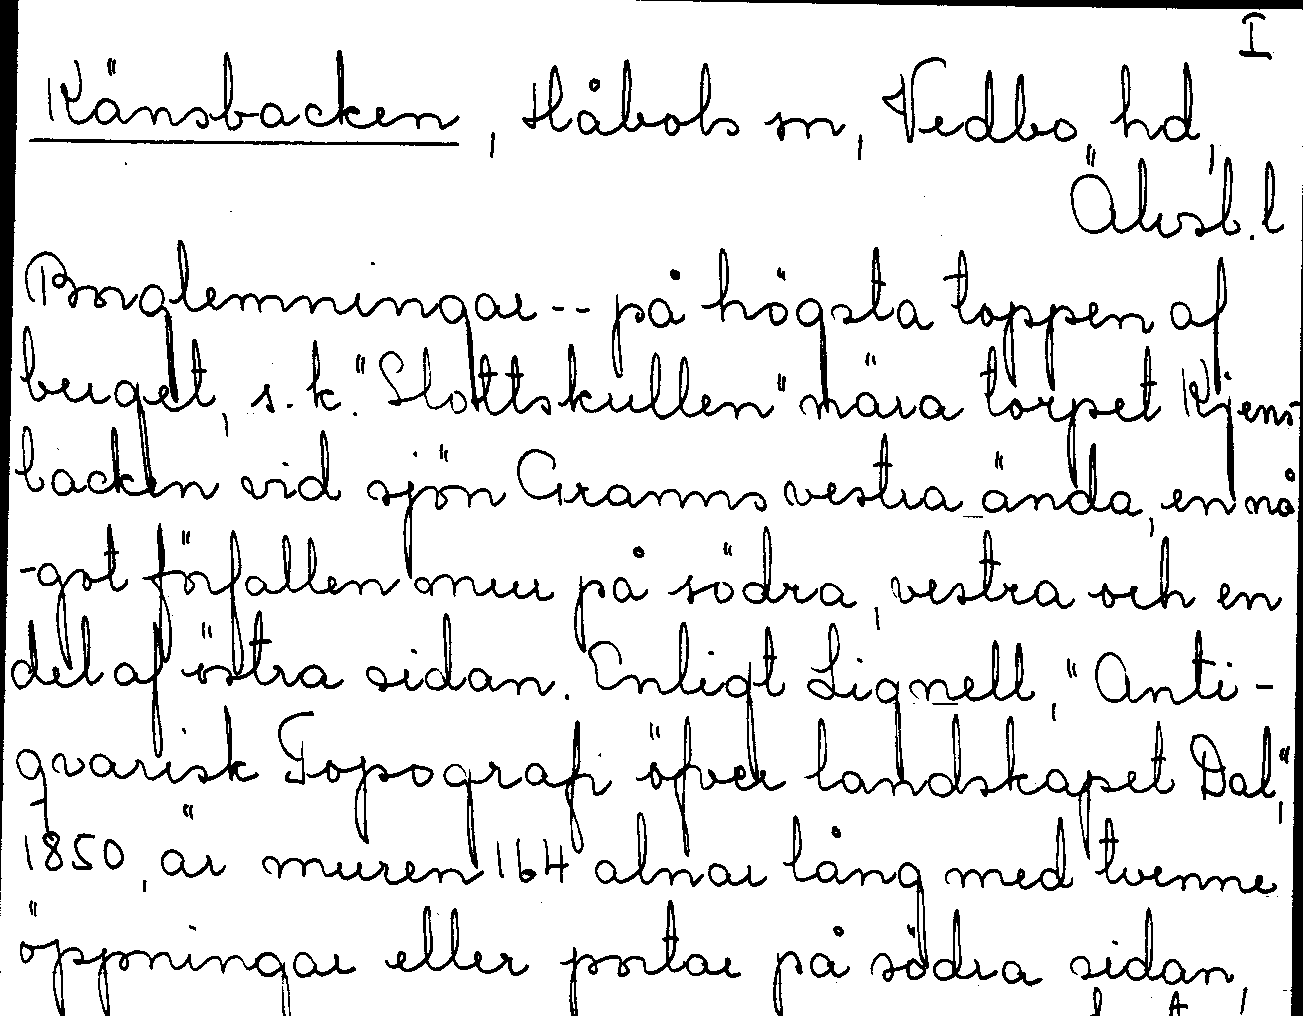 I
Känsbacken, Håbols sn, Vedbo hd,
Älvsb. l
Borglemningar -- på högsta toppen af
berget, s. k. "Slottskullen" nära torpet Kjens-
backen vid sjön Granns vestra ända, en nå
-got förfallen mur på södra, vestra och en
del af östra sidan. Enligt Lignell, "Anti-
qvarisk Topografi öfver landskapet Dal,"
1850, är muren 164 alnar lång med tvenne
öppningar eller portar på södra sidan,